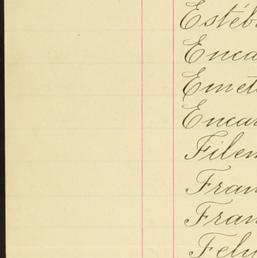 Estéb
Enca
Emet
Encar
Filem
Fran
Fran
Felu